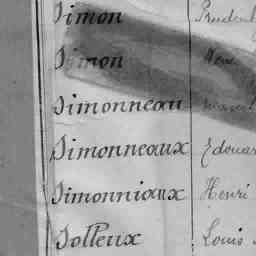 Simon Prudent
Simon
Simonneau
Simonneaux Edouar
Simonniaux Henri
Solleux Louis